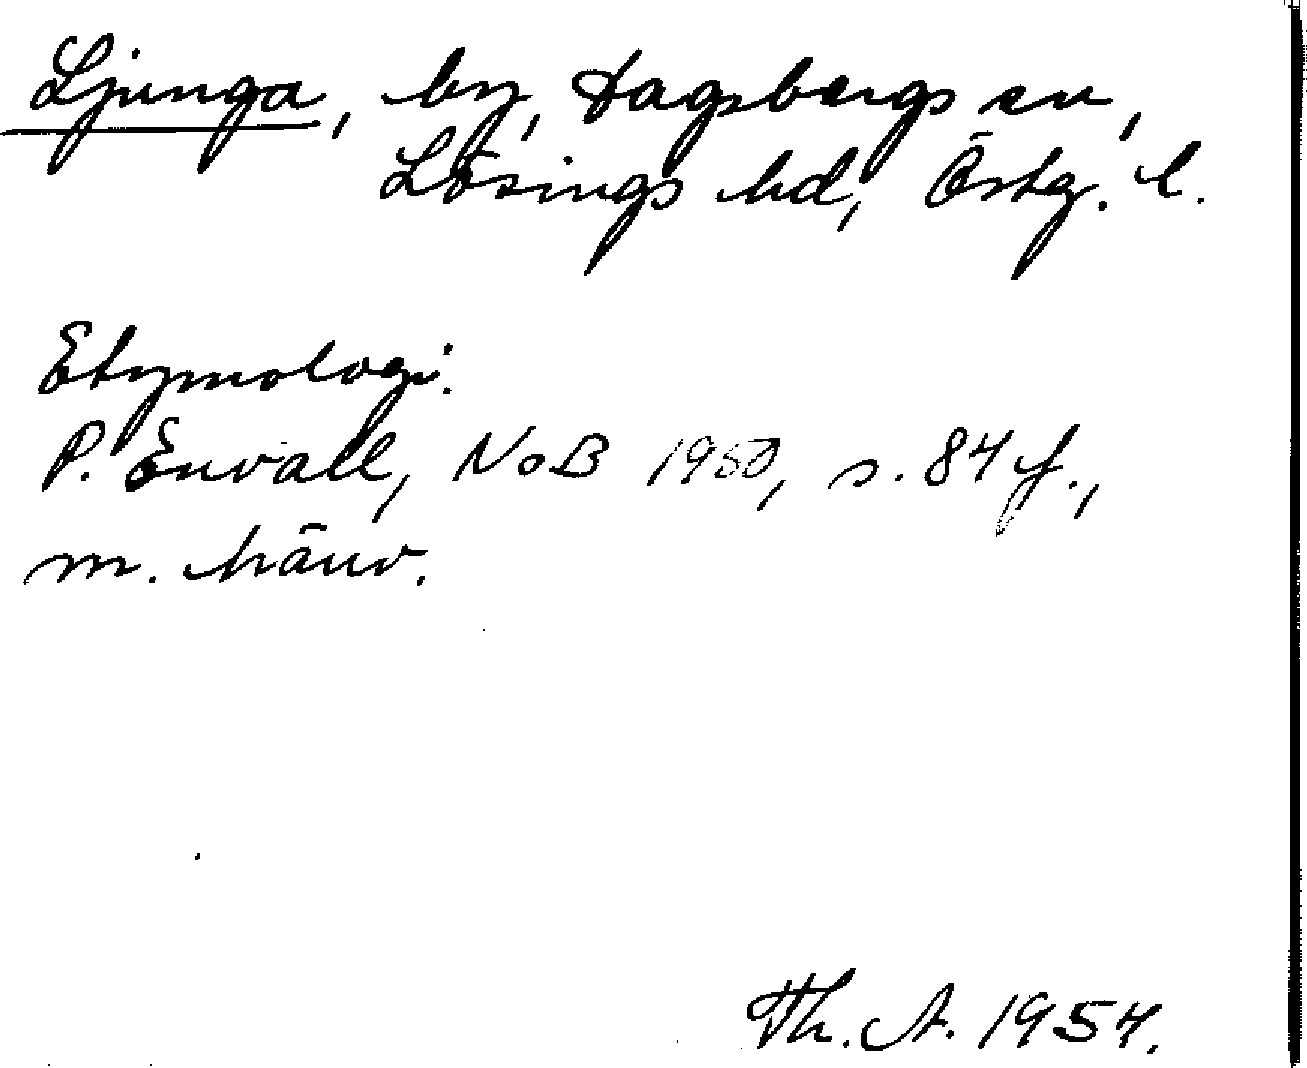 Ljunga, by, Dagsbergs sn,
Lösings hd, Östg. l.
Etymologi:
P. Envall, NoB 1950, s. 84 f.,
m. hänv.
Th. A. 1954.